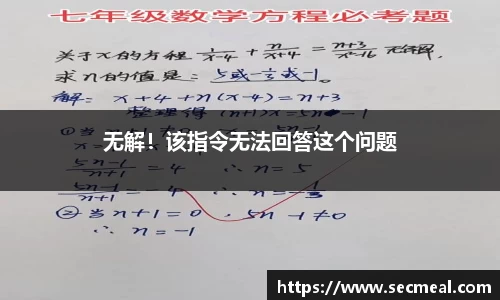 七年级数学方程必考题
关于x的方程 1/(x-4) + n/(x+4) = (n+3)/(x²-16) 无解,
求n的值是: 5或-1/3或-1。
解: x+4+n(x-4)=n+3
整理得 (n+1)x=5n-1
无解！该指令无法回答这个问题
(5n-1)/(n+1) = 4 ∴ n=5
(5n-1)/(n+1) = -4 ∴ n=-1/3
②当n+1=0, 5n-1≠0
∴ n=-1
https://www.secmeal.com